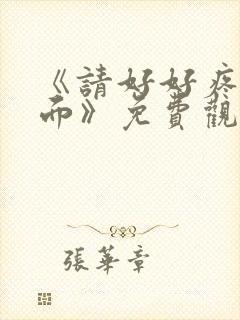 《請好好疼
而》免費觀
張華章